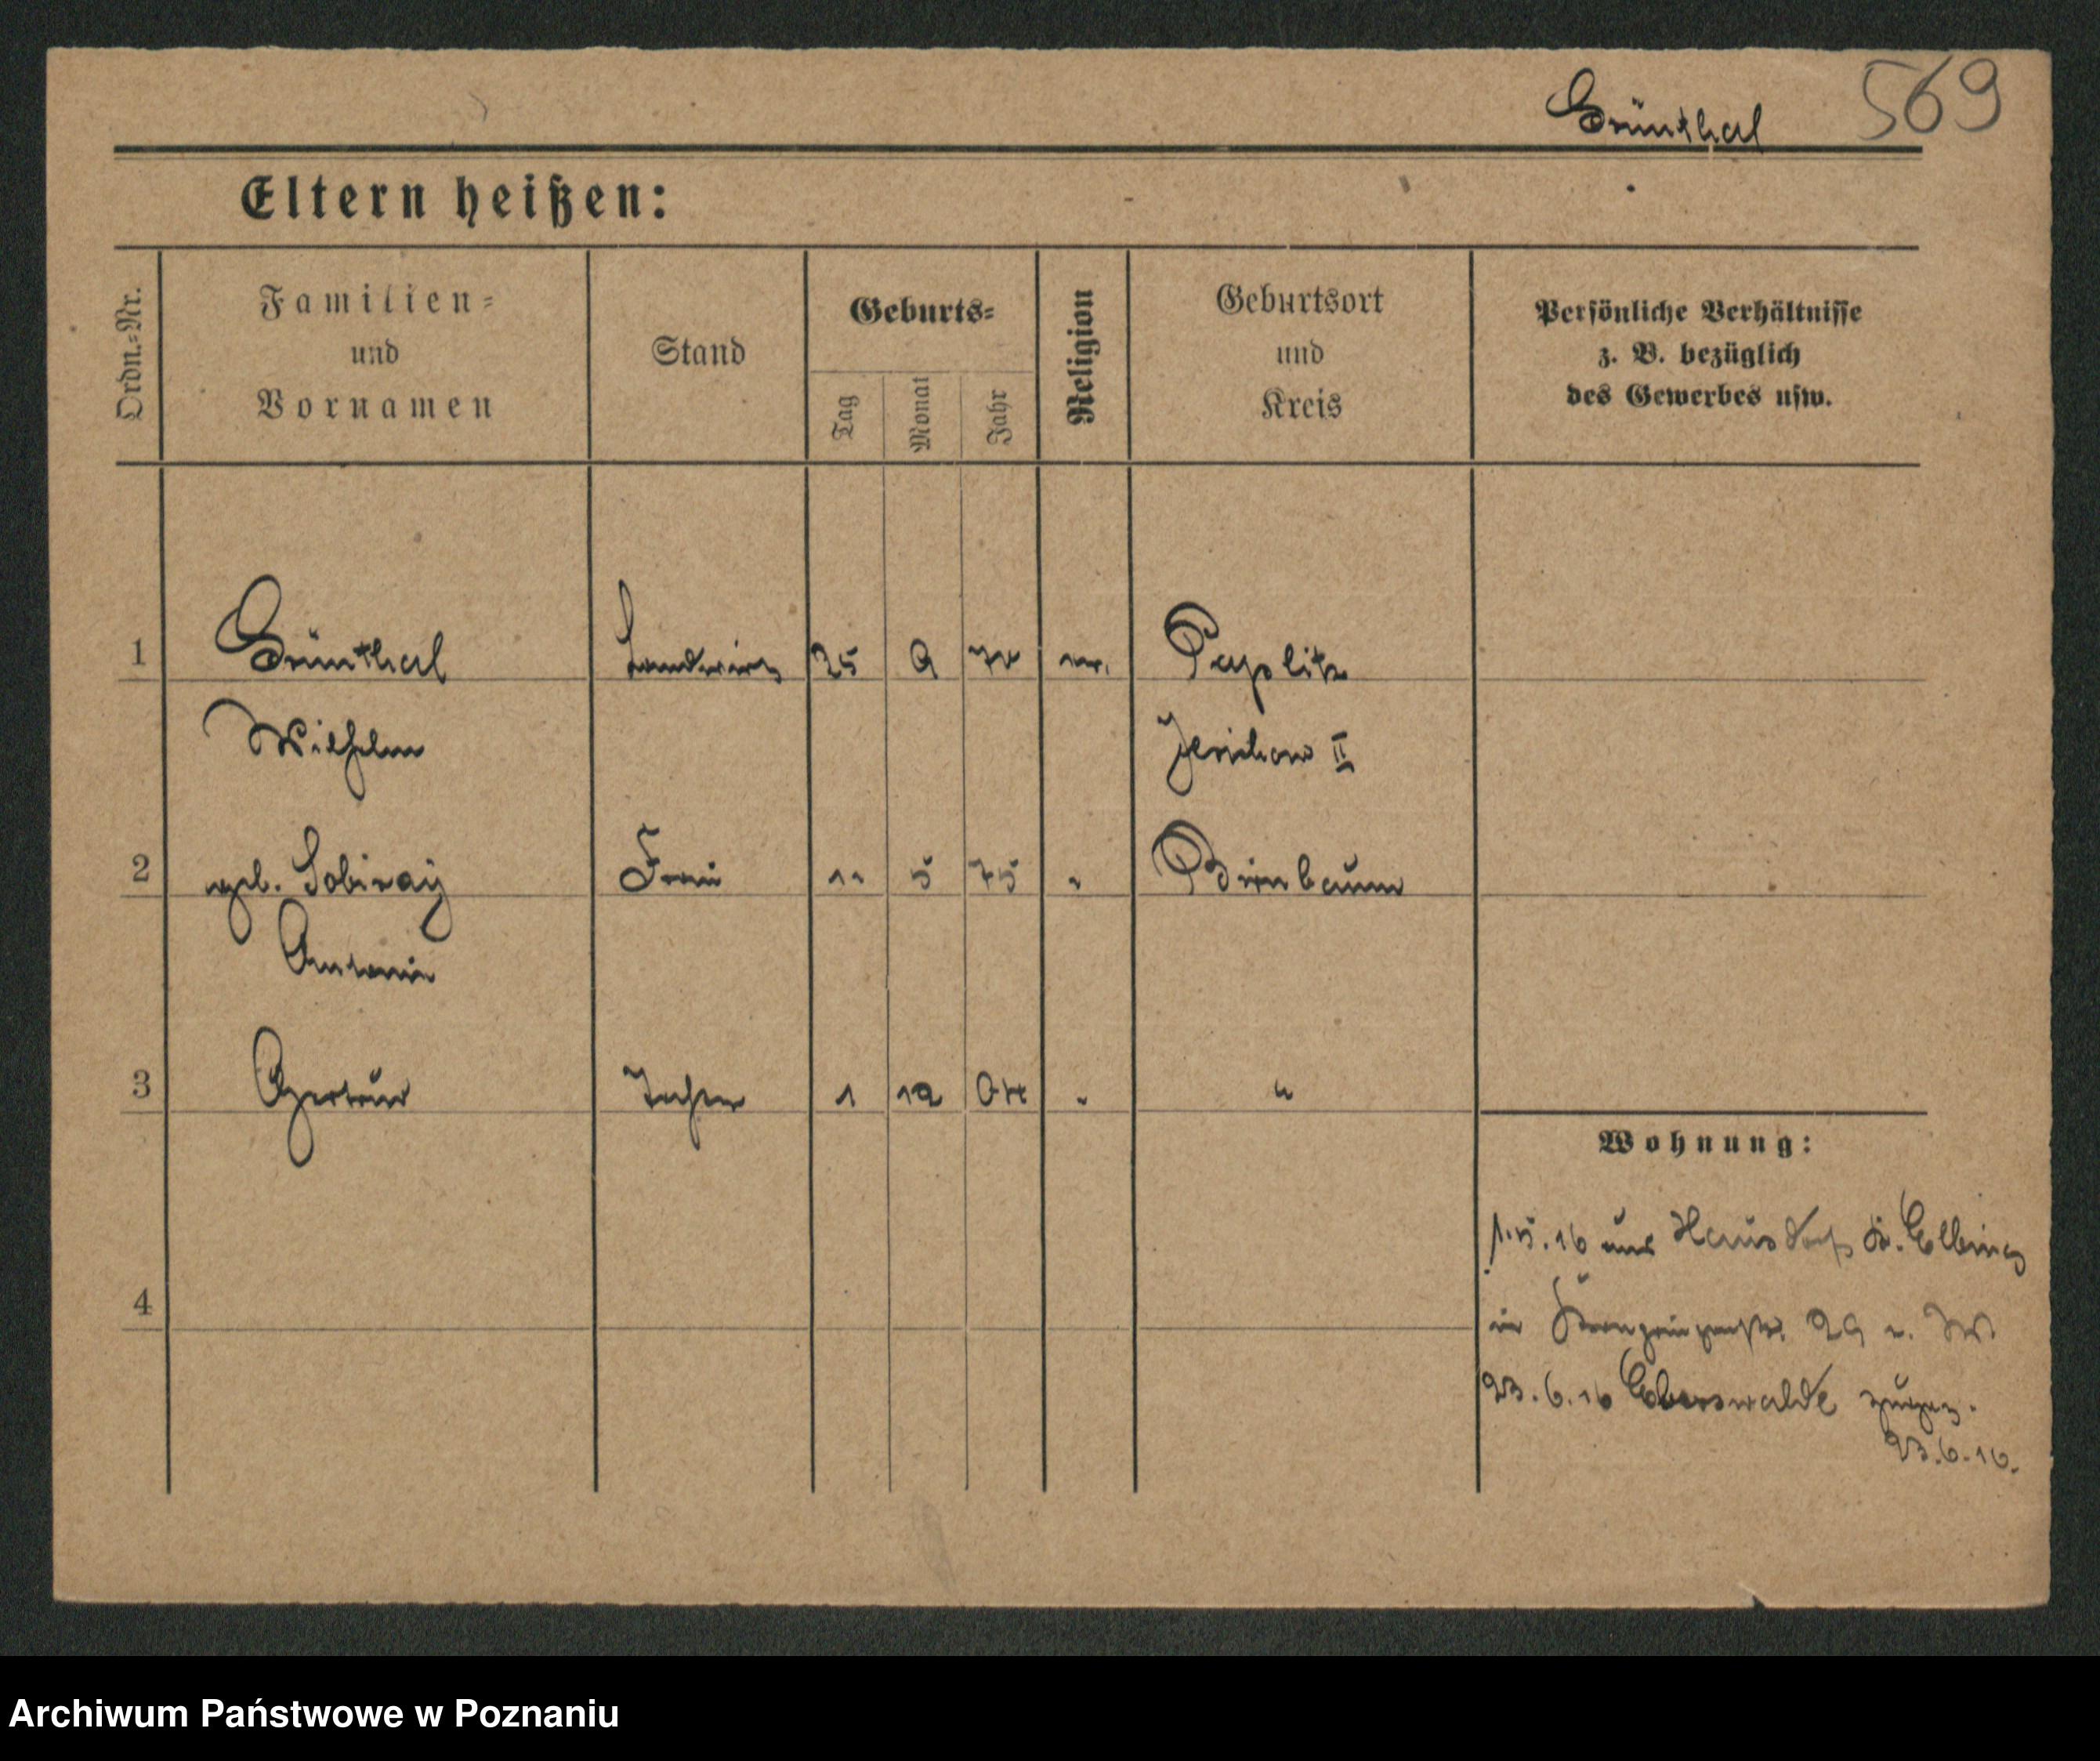 Grünthal 569
Eltern heißen:
Ordn.-Nr.
Familien-
und
Vornamen
Stand
Geburts-
Tag
Monat
Jahr
Religion
Geburtsort
und
Kreis
Persönliche Verhältnisse
z. B. bezüglich
des Gewerbes usw.
1 Grünthal Landwirt 25 9 ev. Paplitz
Wilhelm Jerichow II
2 geb. Frau 5 75 " Birnbaum
Antonie
3 Gertrud Tochter 1 12 04 " "
Wohnung:
1.5.16 aus Hausdorf Kr. Elbing
in Kronprinzenstr. 29
4
23.6.16 Eberswalde
23.6.16.
Archiwum Państwowe w Poznaniu